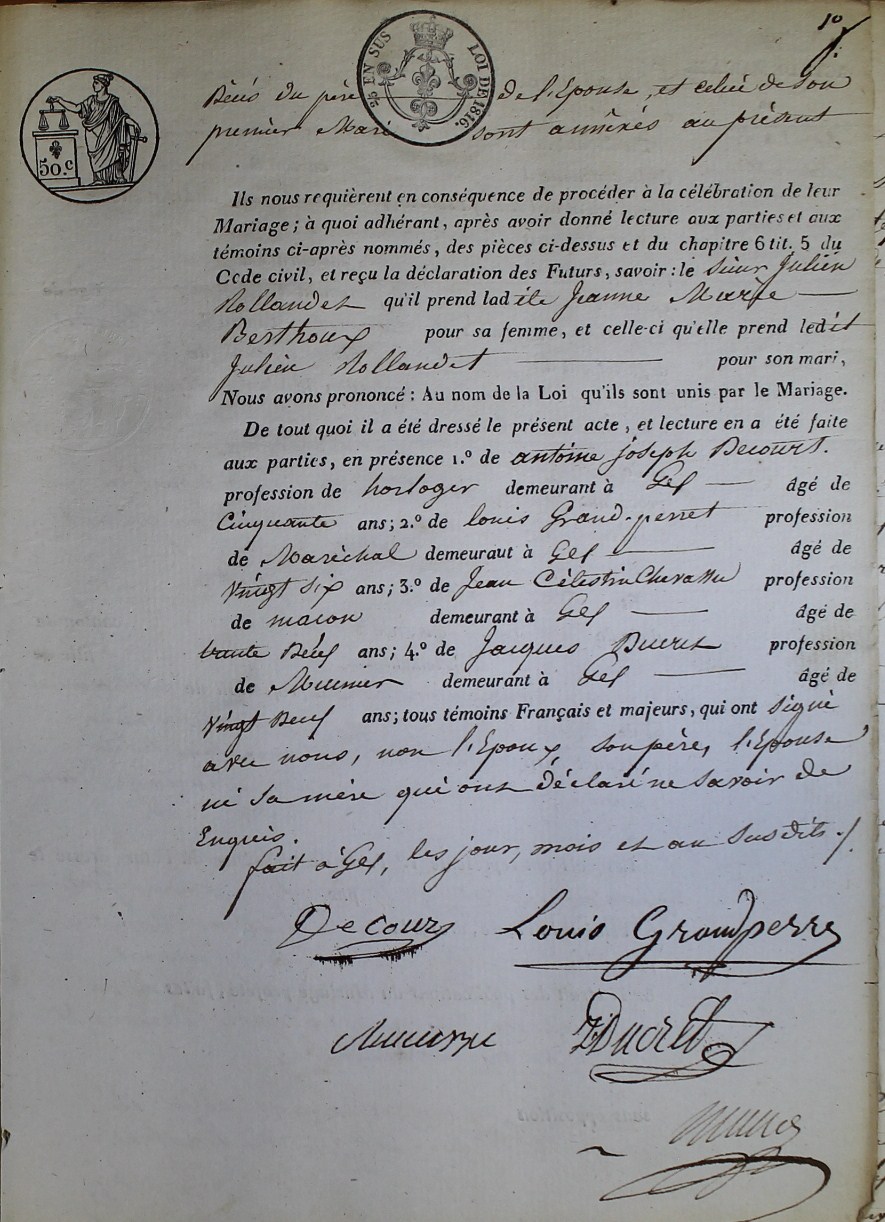 10
25 EN SUS LOI DE 1816.
50.c
Décès du père de l'Epouse, et celui de son
premier Mari sont annéxés au présent
Ils nous requièrent en conséquence de procéder à la célébration de leur
Mariage; à quoi adhérant, après avoir donné lecture aux parties et aux
témoins ci-après nommés, des pièces ci-dessus et du chapitre 6 tit. 5 du
Code civil, et reçu la déclaration des Futurs, savoir: le Sieur Julien
Rollandet qu'il prend ladite Jeanne Marie
Berthoux pour sa femme, et celle-ci qu'elle prend ledit
Julien Rollandet pour son mari,
Nous avons prononcé: Au nom de la Loi qu'ils sont unis par le Mariage.
De tout quoi il a été dressé le présent acte, et lecture en a été faite
aux parties, en présence 1.º de antoine joseph Decourt.
profession de horloger demeurant à Gex âgé de
Cinquante ans; 2.º de louis Grand-perret profession
de Maréchal demeuraut à Gex âgé de
vingt six ans; 3.º de Jean Célestin Chevassu profession
de macon demeurant à Gex âgé de
trente Neuf ans; 4.º de Jacques Ducret profession
de Meunier demeurant à Gex âgé de
vingt Neuf ans; tous témoins Français et majeurs, qui ont signé
avec nous, non l'Epoux son père, l'épouse
ni sa mère qui ont déclaré ne savoir de
Enquis.
fait à Gex, les jour, mois et an susdits ./.
Decour Louis Grandperre
JDucret